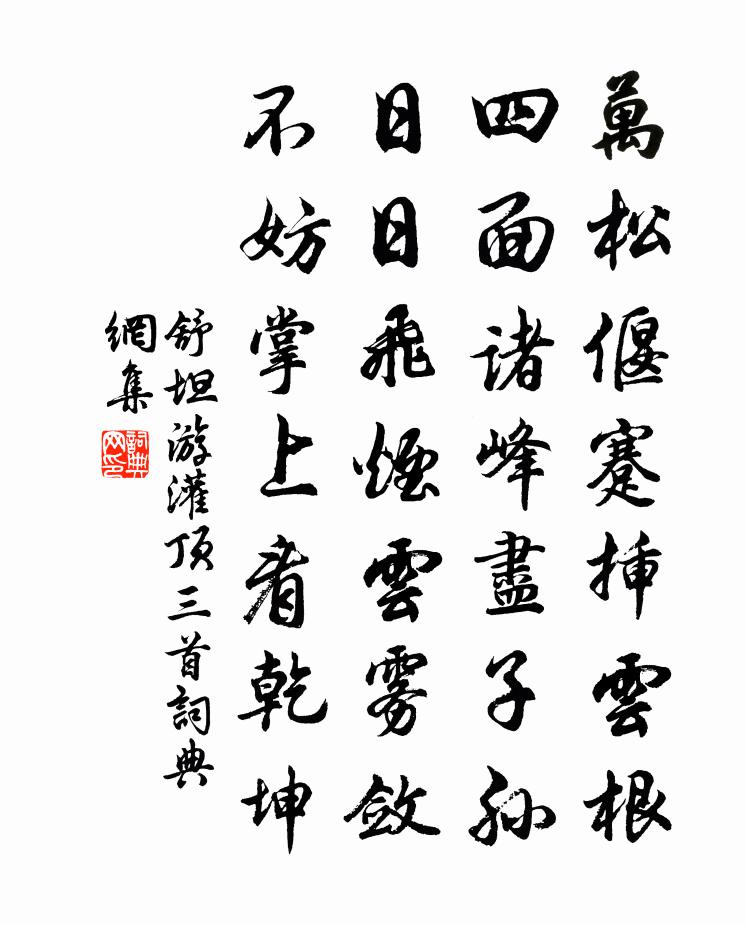 萬松偃蹇插雲根
四面諸峰盡子孫
日日飛煙雲雾斂
不妨掌上看乾坤
舒坦游灌顶三首詞典
網集
詞典网印